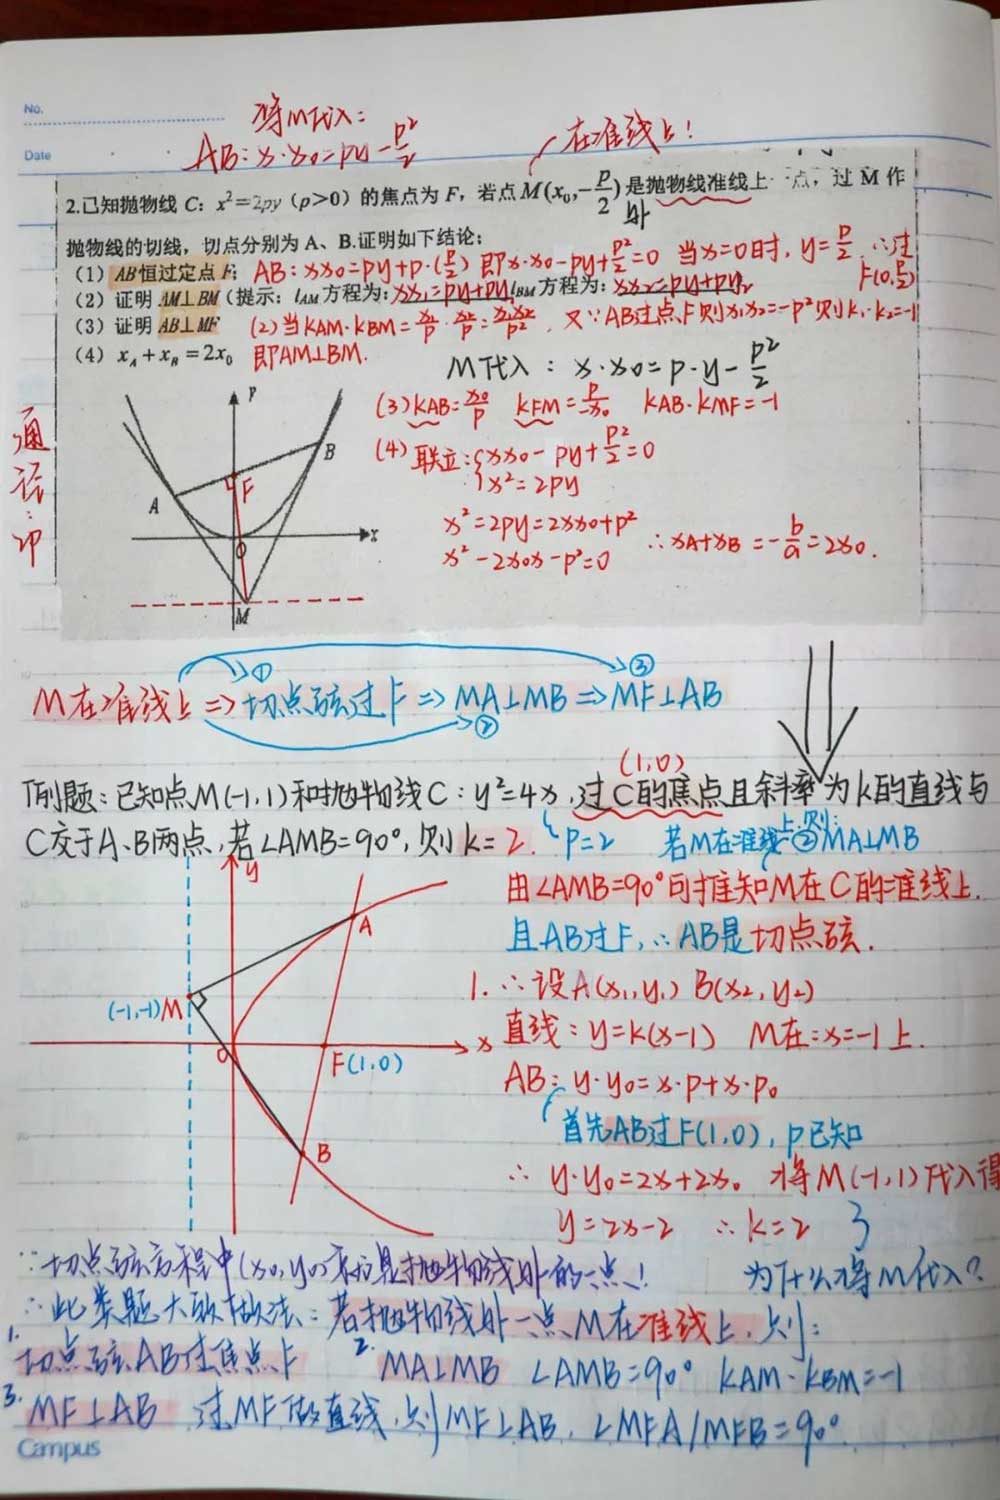 No.
Date
将M代入:
AB: x·x₀=py-p²/2
在准线上!
2.已知抛物线 C: x²=2py (p>0) 的焦点为 F, 若点 M(x₀,-p/2) 是抛物线准线上一点, 过 M 作
外
抛物线的切线, 切点分别为 A、B.证明如下结论:
(1) AB恒过定点F; AB: xx₀=py+p·(p/2) 即x·x₀-py+p²/2=0 当x=0时, y=p/2 ∴过
F(0,p/2)
(2) 证明 AM⊥BM (提示: l_AM 方程为: xx₁=py+py₁ l_BM 方程为: xx₂=py+py₂
(3) 证明 AB⊥MF (2)当KAM·KBM=x₁/p·x₂/p=x₁x₂/p², 又∵AB过点F则x₁x₂=-p²则k₁·k₂=-1
(4) x_A+x_B=2x₀ 即AM⊥BM.
M代入: x·x₀=p·y-p²/2
(3)KAB=x₀/p KFM=p/-x₀ KAB·KMF=-1
(4)联立:{xx₀-py+p²/2=0
x²=2py
x²=2py=2xx₀+p²
x²-2x₀x-p²=0 ∴xA+xB=-b/a=2x₀.
通径:2p
P
A
B
F
x
O
M
① ③
M在准线上⇒切点弦过F⇒MA⊥MB⇒MF⊥AB
②
(1,0)
例题:已知点M(-1,1)和抛物线C:y²=4x,过C的焦点且斜率为k的直线与
C交于A、B两点,若∠AMB=90°,则k=2. p=2 若M在准线上则:②MA⊥MB
由∠AMB=90°可推知M在C的准线上.
且AB过F,∴AB是切点弦.
1.∴设A(x₁,y₁) B(x₂,y₂)
直线:y=k(x-1) M在:x=-1上.
AB: y·y₀=x·p+x·p₀
首先AB过F(1,0),p已知
∴y·y₀=2x+2x₀ 将M(-1,1)代入得
y=2x-2 ∴k=2
y
A
(-1,-1)M
O
x
F(1,0)
B
∵切点弦方程中(x₀,y₀)表示是抛物线外的一点! 为什么将M代入?
∴此类题大致做法:若抛物线外一点M在准线上,则:
1.切点弦AB过焦点F 2.MA⊥MB ∠AMB=90° KAM·KBM=-1
3.MF⊥AB 过MF做直线,则MF⊥AB,∠MFA/MFB=90°
Campus